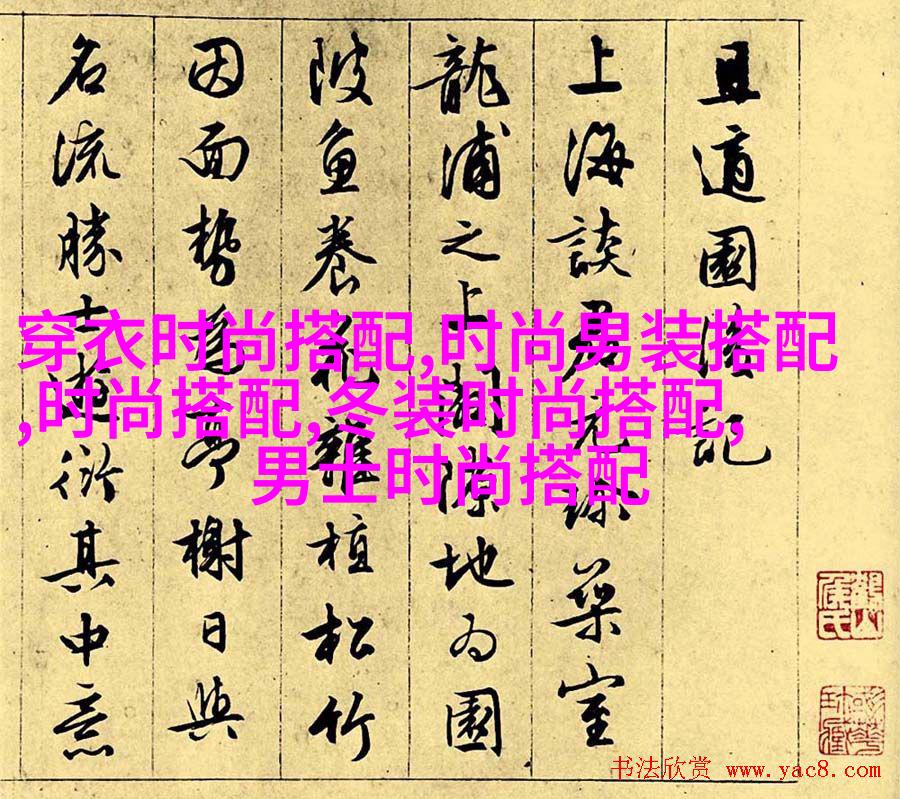 且適園記
上海談君築室
龍浦之上闢隙地為園
陂魚養花雜植松竹
因面勢為亭榭日與
名流勝士遊衍其中意
穿衣时尚搭配,时尚男装搭配
,时尚搭配,冬装时尚搭配,
男士时尚搭配
书法欣赏 www.yac8.com